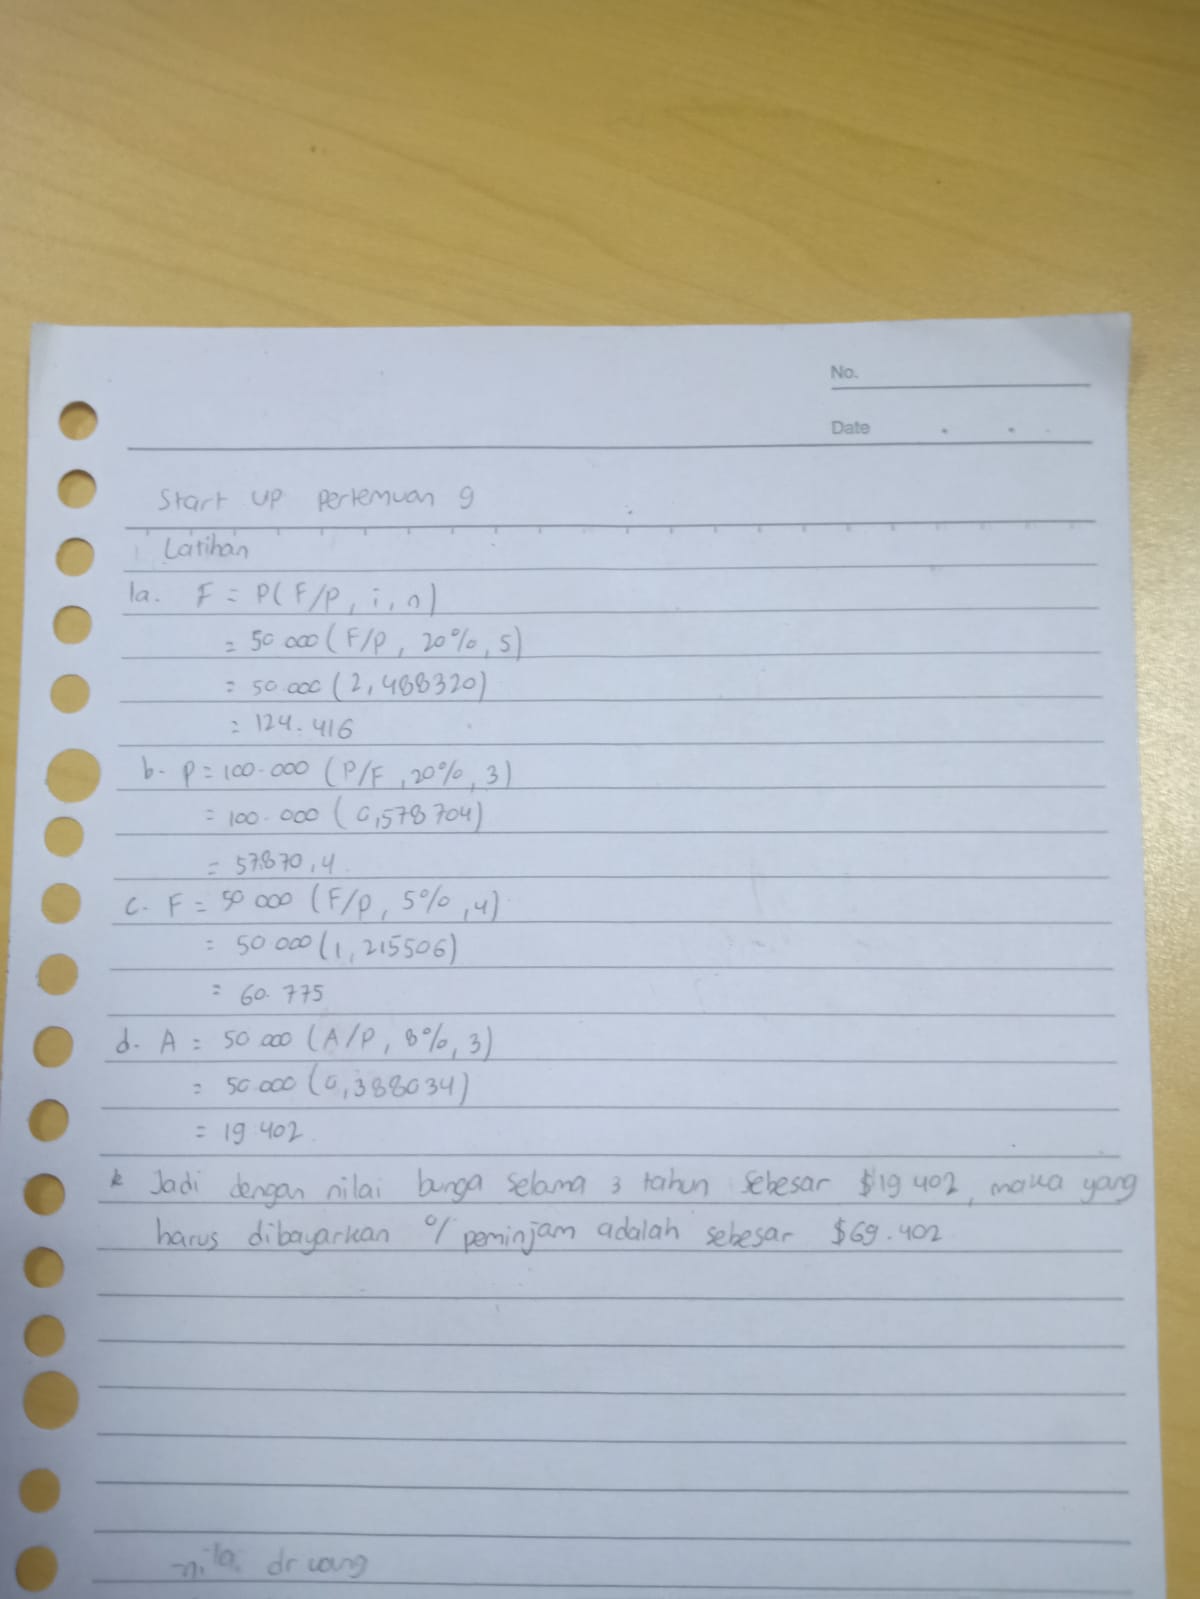 No.
Date
Start up pertemuan 9
Latihan
1a. F = P(F/P, i, n)
= 50 000 (F/P, 20%, 5)
= 50.000 (2,488320)
= 124.416
b. P = 100.000 (P/F, 20%, 3)
= 100.000 (0,578704)
= 57.870,4
c. F = 50 000 (F/P, 5%, 4)
= 50 000 (1,215506)
= 60.775
d. A = 50 000 (A/P, 8%, 3)
= 50.000 (0,388034)
= 19.402.
* Jadi dengan nilai bunga selama 3 tahun sebesar $19 402, maka yang
harus dibayarkan o/ peminjam adalah sebesar $69.402
dr uang